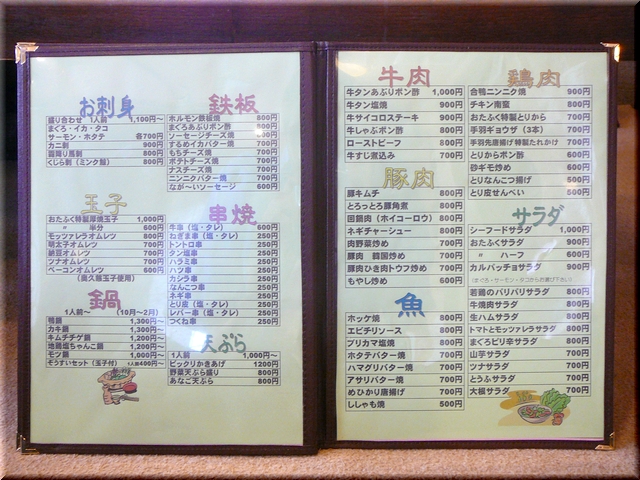 お刺身
盛り合わせ 1人前 1,100円～
まぐろ・イカ・タコ
サーモン・ホタテ 各700円
カニ刺 900円
霜降り馬刺 800円
くじら刺(ミンク鯨) 800円
玉子
おたふく特製厚焼玉子 1,000円
〃 半分 600円
モッツァレラオムレツ 800円
明太子オムレツ 700円
納豆オムレツ 700円
ツナオムレツ 700円
ベーコンオムレツ 600円
(奥久慈玉子使用)
鍋
1人前～ (10月～2月)
鴨鍋 1,300円～
カキ鍋 1,300円～
キムチチゲ鍋 1,200円～
地鶏塩ちゃんこ鍋 1,200円～
モツ鍋 1,000円～
ぞうすいセット(玉子付) 1人前400円～
鉄板
ホルモン鉄板焼 800円
まぐろあぶりポン酢 800円
ソーセージチーズ焼 700円
するめイカバター焼 700円
もちチーズ焼 700円
ポテトチーズ焼 700円
ナスチーズ焼 700円
ニンニクバター焼 700円
なが～いソーセージ 600円
串焼
牛串(塩・タレ) 600円
ねぎま串(塩・タレ) 250円
トントロ串 250円
タン串 250円
ハラミ串 250円
ハツ串 250円
カシラ串 250円
なんこつ串 250円
ネギ串 250円
とり皮(塩・タレ) 250円
レバー串(塩・タレ) 250円
つくね串 250円
天ぷら
1人前 1,000円～
ビックリかきあげ 1200円
野菜天ぷら盛り 800円
あなご天ぷら 800円
牛肉
牛タンあぶりポン酢 1,000円
牛タン塩焼 900円
牛サイコロステーキ 900円
牛しゃぶポン酢 800円
ローストビーフ 800円
牛すじ煮込み 700円
豚肉
豚キムチ 800円
とろっとろ豚角煮 800円
回鍋肉(ホイコーロウ) 800円
ネギチャーシュー 800円
肉野菜炒め 700円
豚肉 韓国炒め 700円
豚肉ひき肉トウフ炒め 700円
もやし炒め 600円
魚
ホッケ焼 800円
エビチリソース 800円
ブリカマ塩焼 800円
ホタテバター焼 700円
ハマグリバター焼 700円
アサリバター焼 700円
めひかり唐揚げ 700円
ししゃも焼 500円
鶏肉
合鴨ニンニク焼 900円
チキン南蛮 800円
おたふく特製とりから 700円
手羽ギョウザ(3本) 700円
手羽先唐揚げ特製たれかけ 700円
とりからポン酢 600円
砂ギモ炒め 600円
とりなんこつ揚げ 500円
とり皮せんべい 500円
サラダ
シーフードサラダ 1,000円
おたふくサラダ 900円
〃 ハーフ 600円
カルパッチョサラダ 900円
若鶏のパリパリサラダ 800円
牛焼肉サラダ 800円
生ハムサラダ 800円
トマトとモッツァレラサラダ 800円
まぐろピリ辛サラダ 800円
山芋サラダ 700円
ツナサラダ 700円
とうふサラダ 700円
大根サラダ 700円